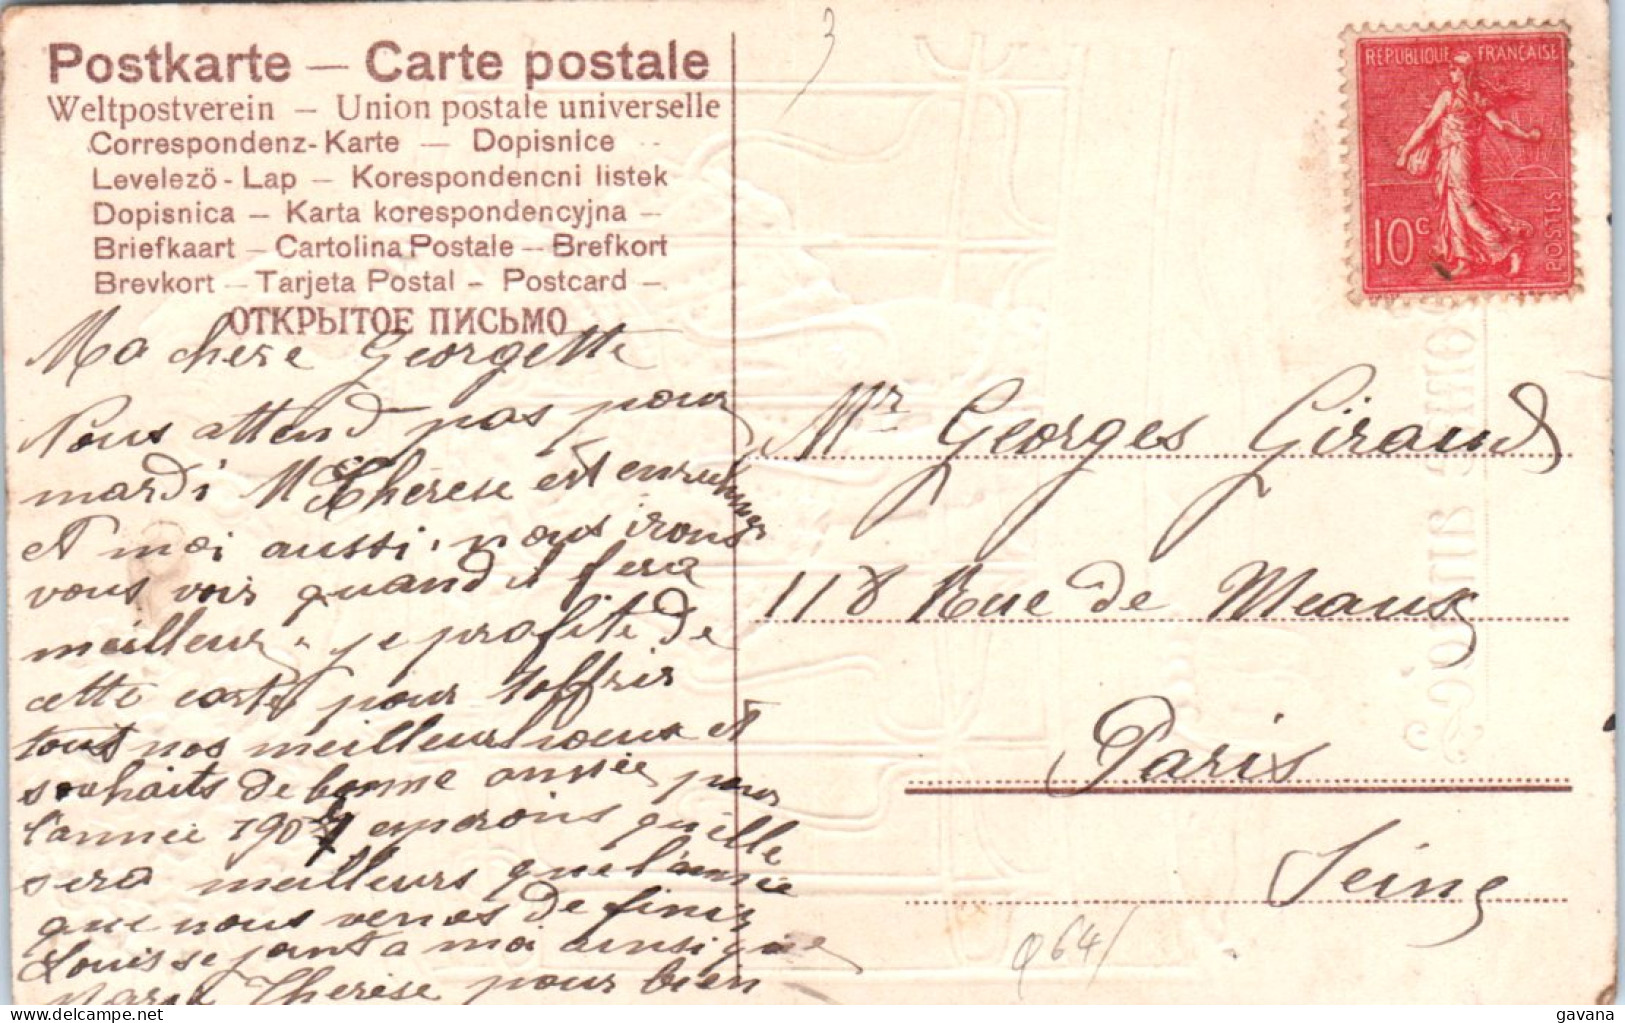 Postkarte — Carte postale
Weltpostverein — Union postale universelle
Correspondenz-Karte — Dopisnice
Levelezö-Lap — Korespondencni listek
Dopisnica — Karta korespondencyjna —
Briefkaart — Cartolina Postale — Brefkort
Brevkort — Tarjeta Postal — Postcard —
ОТКРЫТОЕ ПИСЬМО
Ma chère Georgette
Nous attend pas pour
mardi M Therese est enrhumer
et moi aussi, nous irons
vous voir quand il fera
meilleur. je profite de
cette carte pour t'offrir
tout nos meilleurs voeux et
souhaits de bonne année pour
l'année 1907 esperons qu'elle
sera meilleurs que l'année
que nous venons de finir
Louis se joint a moi ainsi que
Marie Therese pour bien
3
REPUBLIQUE FRANÇAISE
10c
POSTES
Mr Georges Giraud
118 Rue de Meaux
Paris
Seine
064/
gavana